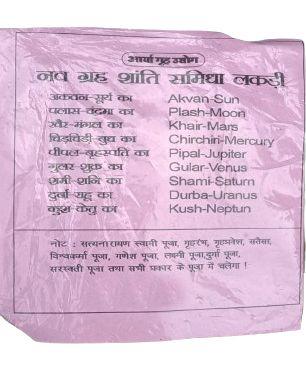 आर्या गृह उद्योग
नव ग्रह शांति समिधा लकड़ी
अकवन-सूर्य का Akvan-Sun
पलास-चंद्रमा का Plash-Moon
खैर-मंगल का Khair-Mars
चिड़चिड़ी-बुध का Chirchiri-Mercury
पीपल-बृहस्पति का Pipal-Jupiter
गुलर-शुक्र का Gular-Venus
शमी-शनि का Shami-Saturn
दुर्बा-राहु का Durba-Uranus
कुश-केतु का Kush-Neptun
नोट : सत्यनारायण स्वामी पूजा, गृहरंभ, गृहप्रवेश, सतैसा,
विश्वकर्मा पूजा, गणेश पूजा, लक्ष्मी पूजा,दुर्गा पूजा,
सरस्वती पूजा तथा सभी प्रकार के पूजा में चलेगा !